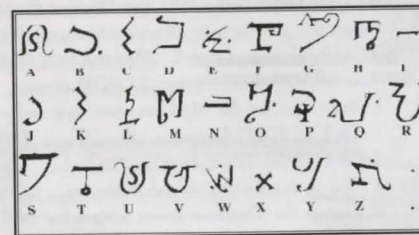 A B C D E H I
J K L M N O P Q R
S T U V W X Y Z